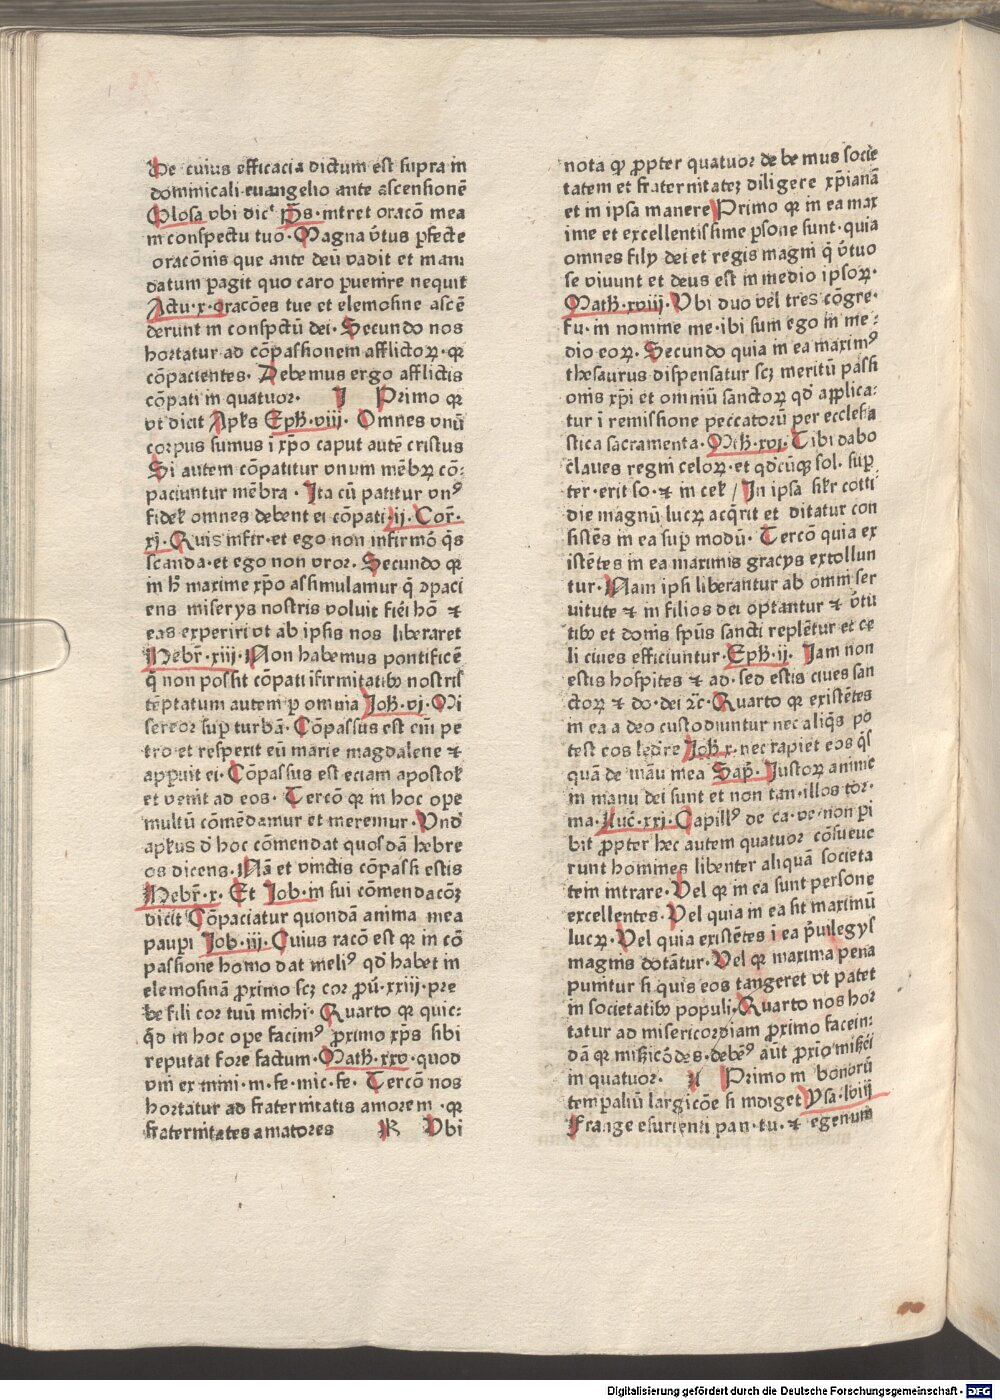 De cuius efficacia dictum est supra in
dominicali euangelio ante ascensionē
Glosa vbi dic᷑ Pс̄. intret oracō mea
in conspectu tuo. Magna v̄tus ꝑfecte
oracōnis que ante deū vadit et man
datum ꝑagit quo caro ꝑuenire nequit
Actu.x.oracōes tue et elemosine ascē
derunt in conspctū dei. Secundo nos
hortatur ad cōpassionem afflictoꝝ. qꝛ
cōpacientes. Debemus ergo afflictis
cōpati in quatuor. J Primo qꝛ
vt dicit Apl̄s Eph.viii. Omnes vnū
corpus sumus ī xp̄o caput autē cristus
Si autem cōpatitur vnum mēbꝝ cō⸗
paciuntur mēbra. Ita cū patitur vnꝰ
fidel̄ omnes debent ei cōpati.ij.Cor̄.
xj. Quis infir.et ego non infirmō q̄s
scanda.et ego non vror. Secundo qꝛ
in h̄ maxime xp̄o assimulamur q̄ ꝯpaci
ens miserys nostris voluit fiēi hō ⁊
eas experiri vt ab ipsis nos liberaret
Hebr̄.xiij. Non habemus pontificē
q̄ non possit cōpati īfirmitatibꝰ nostris
tēptatum autem ꝑ omnia Joh̄.vj. Mi
sereor suꝑ turbā. Cōpassus est em̄ pe
tro et respexit eū marie magdalene ⁊
apꝑuit ei. Cōpassus est eciam apostol̄
et venit ad eos. Tercō qꝛ in hoc ope
multū cōmēdamur et meremur. Vnd̄
apl̄us d̄ hoc cōmendat quosdā hebre
os dicens. Nā et vinctis cōpassi estis
Hebr̄.x. Et Job.in sui cōmendacōꝫ
dicit Cōpaciatur quondā anima mea
paupi Job.iij. Cuius racō est qꝛ in cō
passione homo dat meliꝰ qd̄ habet in
elemosinā ꝓximo scꝫ cor ꝓū.xxiij.pre
be fili cor tuū michi. Quarto qꝛ quic⸗
q̄d in hoc ope facimꝰ ꝓximo xp̄s sibi
reputat fore factum. Math̄.xxv.quod
vni ex mini.m.fe.mic.fe. Tercō nos
hortatur ad fraternitatis amorem.qꝛ
fraternitates amatores K Vbi
nota qꝫ ꝓpter quatuor debemus socie
tatem et fraternitateꝫ diligere xp̄ianā
et in ipsa manere Primo qꝛ in ea max
ime et excellentissime ꝑsone sunt.quia
omnes fily dei et regis magni q̄ v̄tuo
se viuunt et deus est in medio ipsoꝝ.
Math̄.xviij. Vbi duo vel tres cōgre.
fu.in nomine me.ibi sum ego in me⸗
dio eoꝝ. Secundo quia in ea maximꝰ
thesaurus dispensatur scꝫ meritū passi
onis xp̄i et omniū sanctoꝝ qd̄ applica⸗
tur ī remissione peccatorū per ecclesia
stica sacramenta. Mth̄.xvi. Tibi dabo
claues regni celoꝝ.et qdcūqꝫ sol.suꝑ
ter.erit so.⁊ in cel̄ / In ipsa sil̄r cotti
die magnū lucꝝ acq̄rit et ditatur con
sistēs in ea suꝑ modū. Tercō quia ex
istētes in ea maximis gracys extollun
tur. Nam ipsi liberantur ab omni ser
uitute ⁊ in filios dei optantur ⁊ v̄tu
tibꝰ et donis sp̄us sancti replētur et ce
li ciues efficiuntur. Eph̄.ij. Jam non
estis hospites ⁊ ad.sed estis ciues san
ctoꝝ ⁊ do.dei ⁊c̄. Quarto qꝛ existētes
in ea a deo custodiuntur nec aliq̄s po
test eos ledere Joh̄.x.nec rapiet eos q̄s
quā de māu mea Sap̄. Justoꝝ anime
in manu dei sunt et non tan.illos tor.
ma. Luc̄.xxj. Capillꝰ de ca.ve.non ꝑi
bit ꝓpter hec autem quatuor cōsueue
runt homines libenter aliquā societa
tem intrare. Vel qꝛ in ea sunt persone
excellentes. Vel quia in ea sit maximū
lucꝝ. Vel quia existētes ī ea p̄uilegys
magnis dotātur. Vel qꝛ maxima pena
punitur si quis eos tangeret vt patet
in societatibꝰ populi. Quarto nos hor
tatur ad misericordiam ꝓximo facein⸗
dā qꝛ mīs̄icōdes.debēꝰ aūt ꝓxīo mis̄eī
in quatuor. Primo in bonorū
tempaliū largicōe si indiget Ysa.lviij
Frange esurienti pan.tu.⁊ egenum
Digitalisierung gefördert durch die Deutsche Forschungsgemeinschaft - DFG